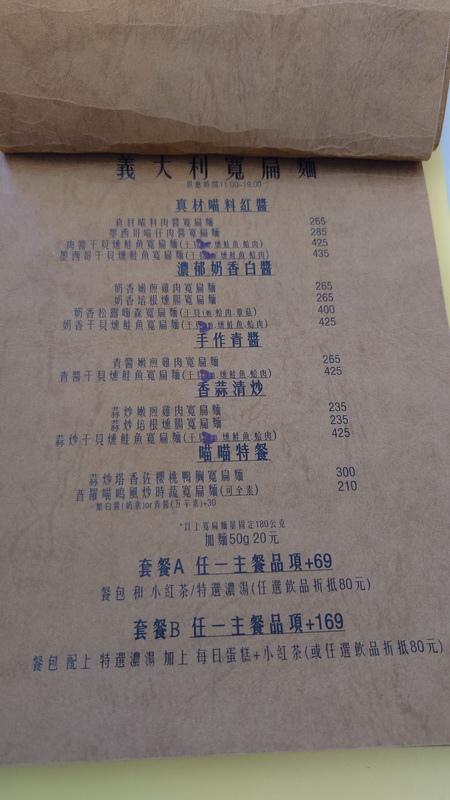 義大利寬扁麵
供應時間11:00~19:00
真材喵料紅醬
真材喵料肉醬寬扁麵 265
墨西哥喵仔肉醬寬扁麵 285
肉醬干貝燻鮭魚寬扁麵(干貝 燻鮭魚.蛤肉) 425
墨西哥干貝燻鮭魚寬扁麵(干貝 燻鮭魚.蛤肉) 435
濃郁奶香白醬
奶香嫩煎雞肉寬扁麵 265
奶香培根燻腸寬扁麵 265
奶香松露 寬扁麵(干貝 蛤肉.蘑菇) 400
奶香干貝燻鮭魚寬扁麵(干貝 燻鮭魚.蛤肉) 425
手作青醬
青醬嫩煎雞肉寬扁麵 265
青醬干貝燻鮭魚寬扁麵(干貝 燻鮭魚.蛤肉) 425
香蒜清炒
蒜炒嫩煎雞肉寬扁麵 235
蒜炒培根燻腸寬扁麵 235
蒜炒干貝燻鮭魚寬扁麵(干貝 燻鮭魚.蛤肉) 425
喵喵特餐
蒜炒塔香佐櫻桃鴨胸寬扁麵 300
普羅喵嗚風炒時蔬寬扁麵(可全素) 210
加白醬(奶素)or青醬(五辛素)+30
*以上寬扁麵量固定180公克
加麵50g 20元
套餐A 任一主餐品項+69
餐包 和 小紅茶/特選濃湯(任選飲品折抵80元)
套餐B 任一主餐品項+169
餐包 配上 特選濃湯 加上 每日蛋糕+小紅茶(或任選飲品折抵80元)